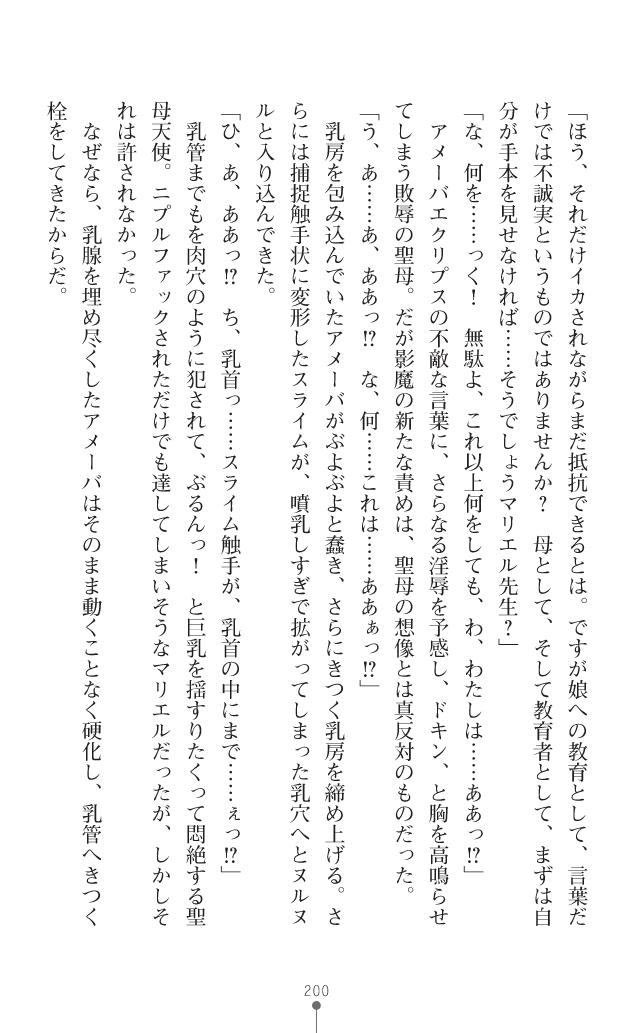 「ほう、それだけイカされながらまだ抵抗できるとは。ですが娘への教育として、言葉だ
けでは不誠実というものではありませんか？　母として、そして教育者として、まずは自
分が手本を見せなければ……そうでしょうマリエル先生？」
「な、何を……っく！　無駄よ、これ以上何をしても、わ、わたしは……ああっ!?」
　アメーバエクリプスの不敵な言葉に、さらなる淫辱を予感し、ドキン、と胸を高鳴らせ
てしまう敗辱の聖母。だが影魔の新たな責めは、聖母の想像とは真反対のものだった。
「う、あ……あ、ああっ!?　な、何……これは……ああぁっ!?」
　乳房を包み込んでいたアメーバがぷよぷよと蠢き、さらにきつく乳房を締め上げる。さ
らには捕捉触手状に変形したスライムが、噴乳しすぎで拡がってしまった乳穴へとヌルヌ
ルと入り込んできた。
「ひ、あ、ああっ!?　ち、乳首っ……スライム触手が、乳首の中にまで……ぇっ!?」
　乳管までもを肉穴のように犯されて、ぶるんっ！　と巨乳を揺すりたくって悶絶する聖
母天使。ニプルファックされただけでも達してしまいそうなマリエルだったが、しかしそ
れは許されなかった。
　なぜなら、乳腺を埋め尽くしたアメーバはそのまま動くことなく硬化し、乳管へきつく
栓をしてきたからだ。
200